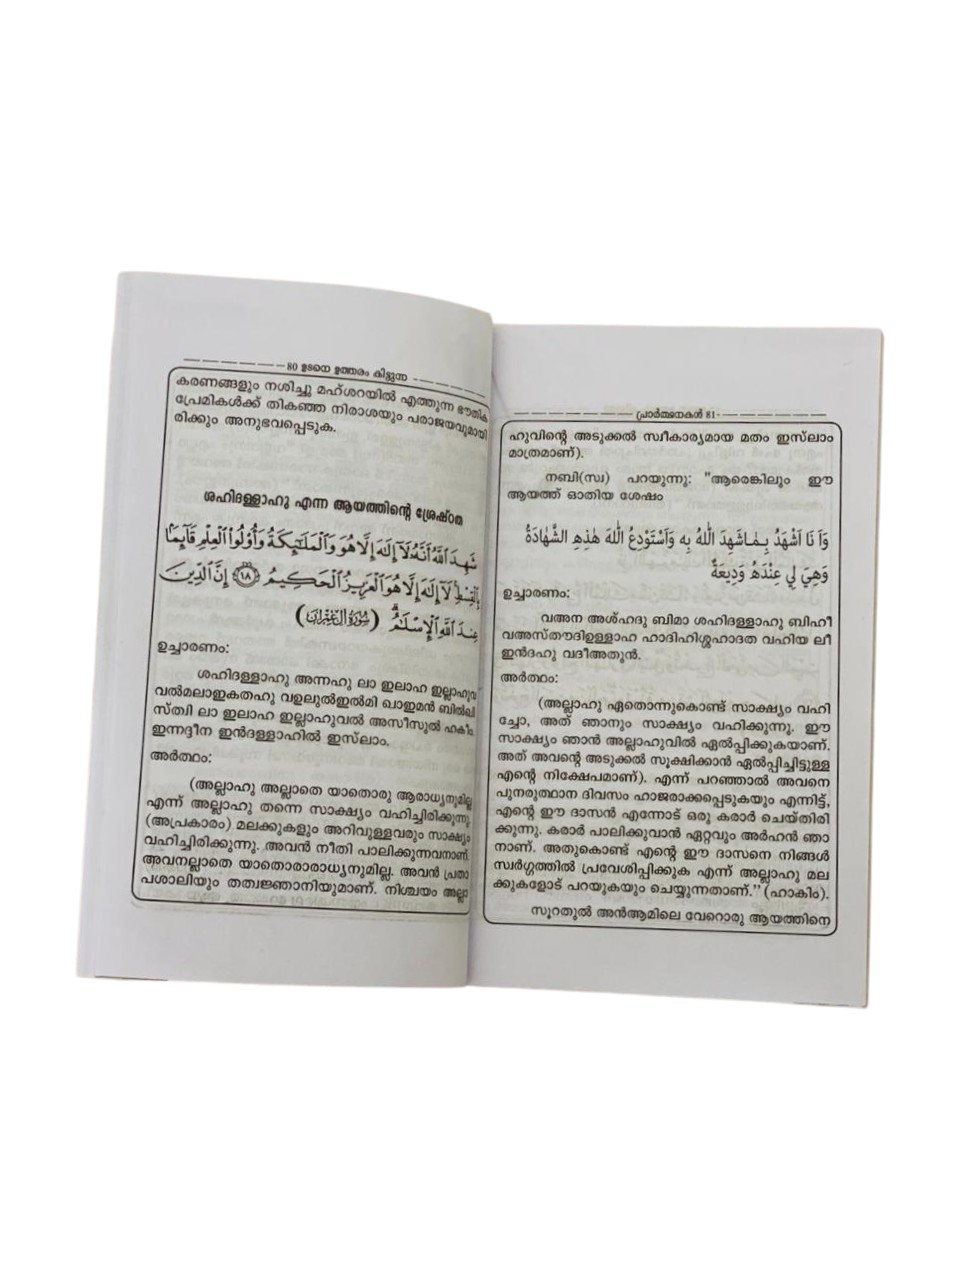 80 ഉടനെ ഉത്തരം കിട്ടുന്ന
കരണങ്ങളും നശിച്ചു മഹ്ശറയിൽ എത്തുന്ന ഭൗതിക
പ്രേമികൾക്ക് തികഞ്ഞ നിരാശയും പരാജയവുമായി
രിക്കും അനുഭവപ്പെടുക.
ശഹിദള്ളാഹു എന്ന ആയത്തിന്റെ ശ്രേഷ്ഠത
شَهِدَ ٱللَّهُ أَنَّهُۥ لَآ إِلَٰهَ إِلَّا هُوَ وَٱلْمَلَٰٓئِكَةُ وَأُو۟لُوا۟ ٱلْعِلْمِ قَآئِمًۢا
بِٱلْقِسْطِ ۚ لَآ إِلَٰهَ إِلَّا هُوَ ٱلْعَزِيزُ ٱلْحَكِيمُ ﴿١٨﴾ إِنَّ ٱلدِّينَ
عِندَ ٱللَّهِ ٱلْإِسْلَٰمُ ۗ (سُورَةُ آل عِمْرَان)
ഉച്ചാരണം:
ശഹിദള്ളാഹു അന്നഹു ലാ ഇലാഹ ഇല്ലാഹുവ
വൽമലാഇകതഹു വഉലുൽഇൽമി ഖാഇമൻ ബിൽഖി
സ്ത്വി ലാ ഇലാഹ ഇല്ലാഹുവൽ അസീസുൽ ഹകീം
ഇന്നദ്ദീന ഇൻദള്ളാഹിൽ ഇസ്‌ലാം.
അർത്ഥം:
(അല്ലാഹു അല്ലാതെ യാതൊരു ആരാധ്യനുമില്ല
എന്ന് അല്ലാഹു തന്നെ സാക്ഷ്യം വഹിച്ചിരിക്കുന്നു.
(അപ്രകാരം) മലക്കുകളും അറിവുള്ളവരും സാക്ഷ്യം
വഹിച്ചിരിക്കുന്നു. അവൻ നീതി പാലിക്കുന്നവനാണ്.
അവനല്ലാതെ യാതൊരാരാധ്യനുമില്ല. അവൻ പ്രതാ
പശാലിയും തത്വജ്ഞാനിയുമാണ്. നിശ്ചയം അല്ലാ
പ്രാർത്ഥനകൾ 81
ഹുവിന്റെ അടുക്കൽ സ്വീകാര്യമായ മതം ഇസ്‌ലാം
മാത്രമാണ്).
നബി(സ്വ) പറയുന്നു: "ആരെങ്കിലും ഈ
ആയത്ത് ഓതിയ ശേഷം
وَأَ نَا أَشْهَدُ بِمَاشَهِدَ اللّٰهُ بِهِ وَأَسْتَوْدِعُ اللّٰهَ هٰذِهِ الشَّهَادَةَ
وَهِيَ لِي عِنْدَهُ وَدِيعَةٌ
ഉച്ചാരണം:
വഅന അശ്ഹദു ബിമാ ശഹിദള്ളാഹു ബിഹീ
വഅസ്തൗദിഉള്ളാഹ ഹാദിഹിശ്ശഹാദത വഹിയ ലീ
ഇൻദഹു വദീഅതുൻ.
അർത്ഥം:
(അല്ലാഹു ഏതൊന്നുകൊണ്ട് സാക്ഷ്യം വഹി
ച്ചോ, അത് ഞാനും സാക്ഷ്യം വഹിക്കുന്നു. ഈ
സാക്ഷ്യം ഞാൻ അല്ലാഹുവിൽ ഏൽപ്പിക്കുകയാണ്.
അത് അവന്റെ അടുക്കൽ സൂക്ഷിക്കാൻ ഏൽപ്പിച്ചിട്ടുള്ള
എന്റെ നിക്ഷേപമാണ്). എന്ന് പറഞ്ഞാൽ അവനെ
പുനരുത്ഥാന ദിവസം ഹാജരാക്കപ്പെടുകയും എന്നിട്ട്,
എന്റെ ഈ ദാസൻ എന്നോട് ഒരു കരാർ ചെയ്തിരി
ക്കുന്നു. കരാർ പാലിക്കുവാൻ ഏറ്റവും അർഹൻ ഞാ
നാണ്. അതുകൊണ്ട് എന്റെ ഈ ദാസനെ നിങ്ങൾ
സ്വർഗ്ഗത്തിൽ പ്രവേശിപ്പിക്കുക എന്ന് അല്ലാഹു മല
ക്കുകളോട് പറയുകയും ചെയ്യുന്നതാണ്." (ഹാകിം).
സൂറതുൽ അൻആമിലെ വേറൊരു ആയത്തിനെ